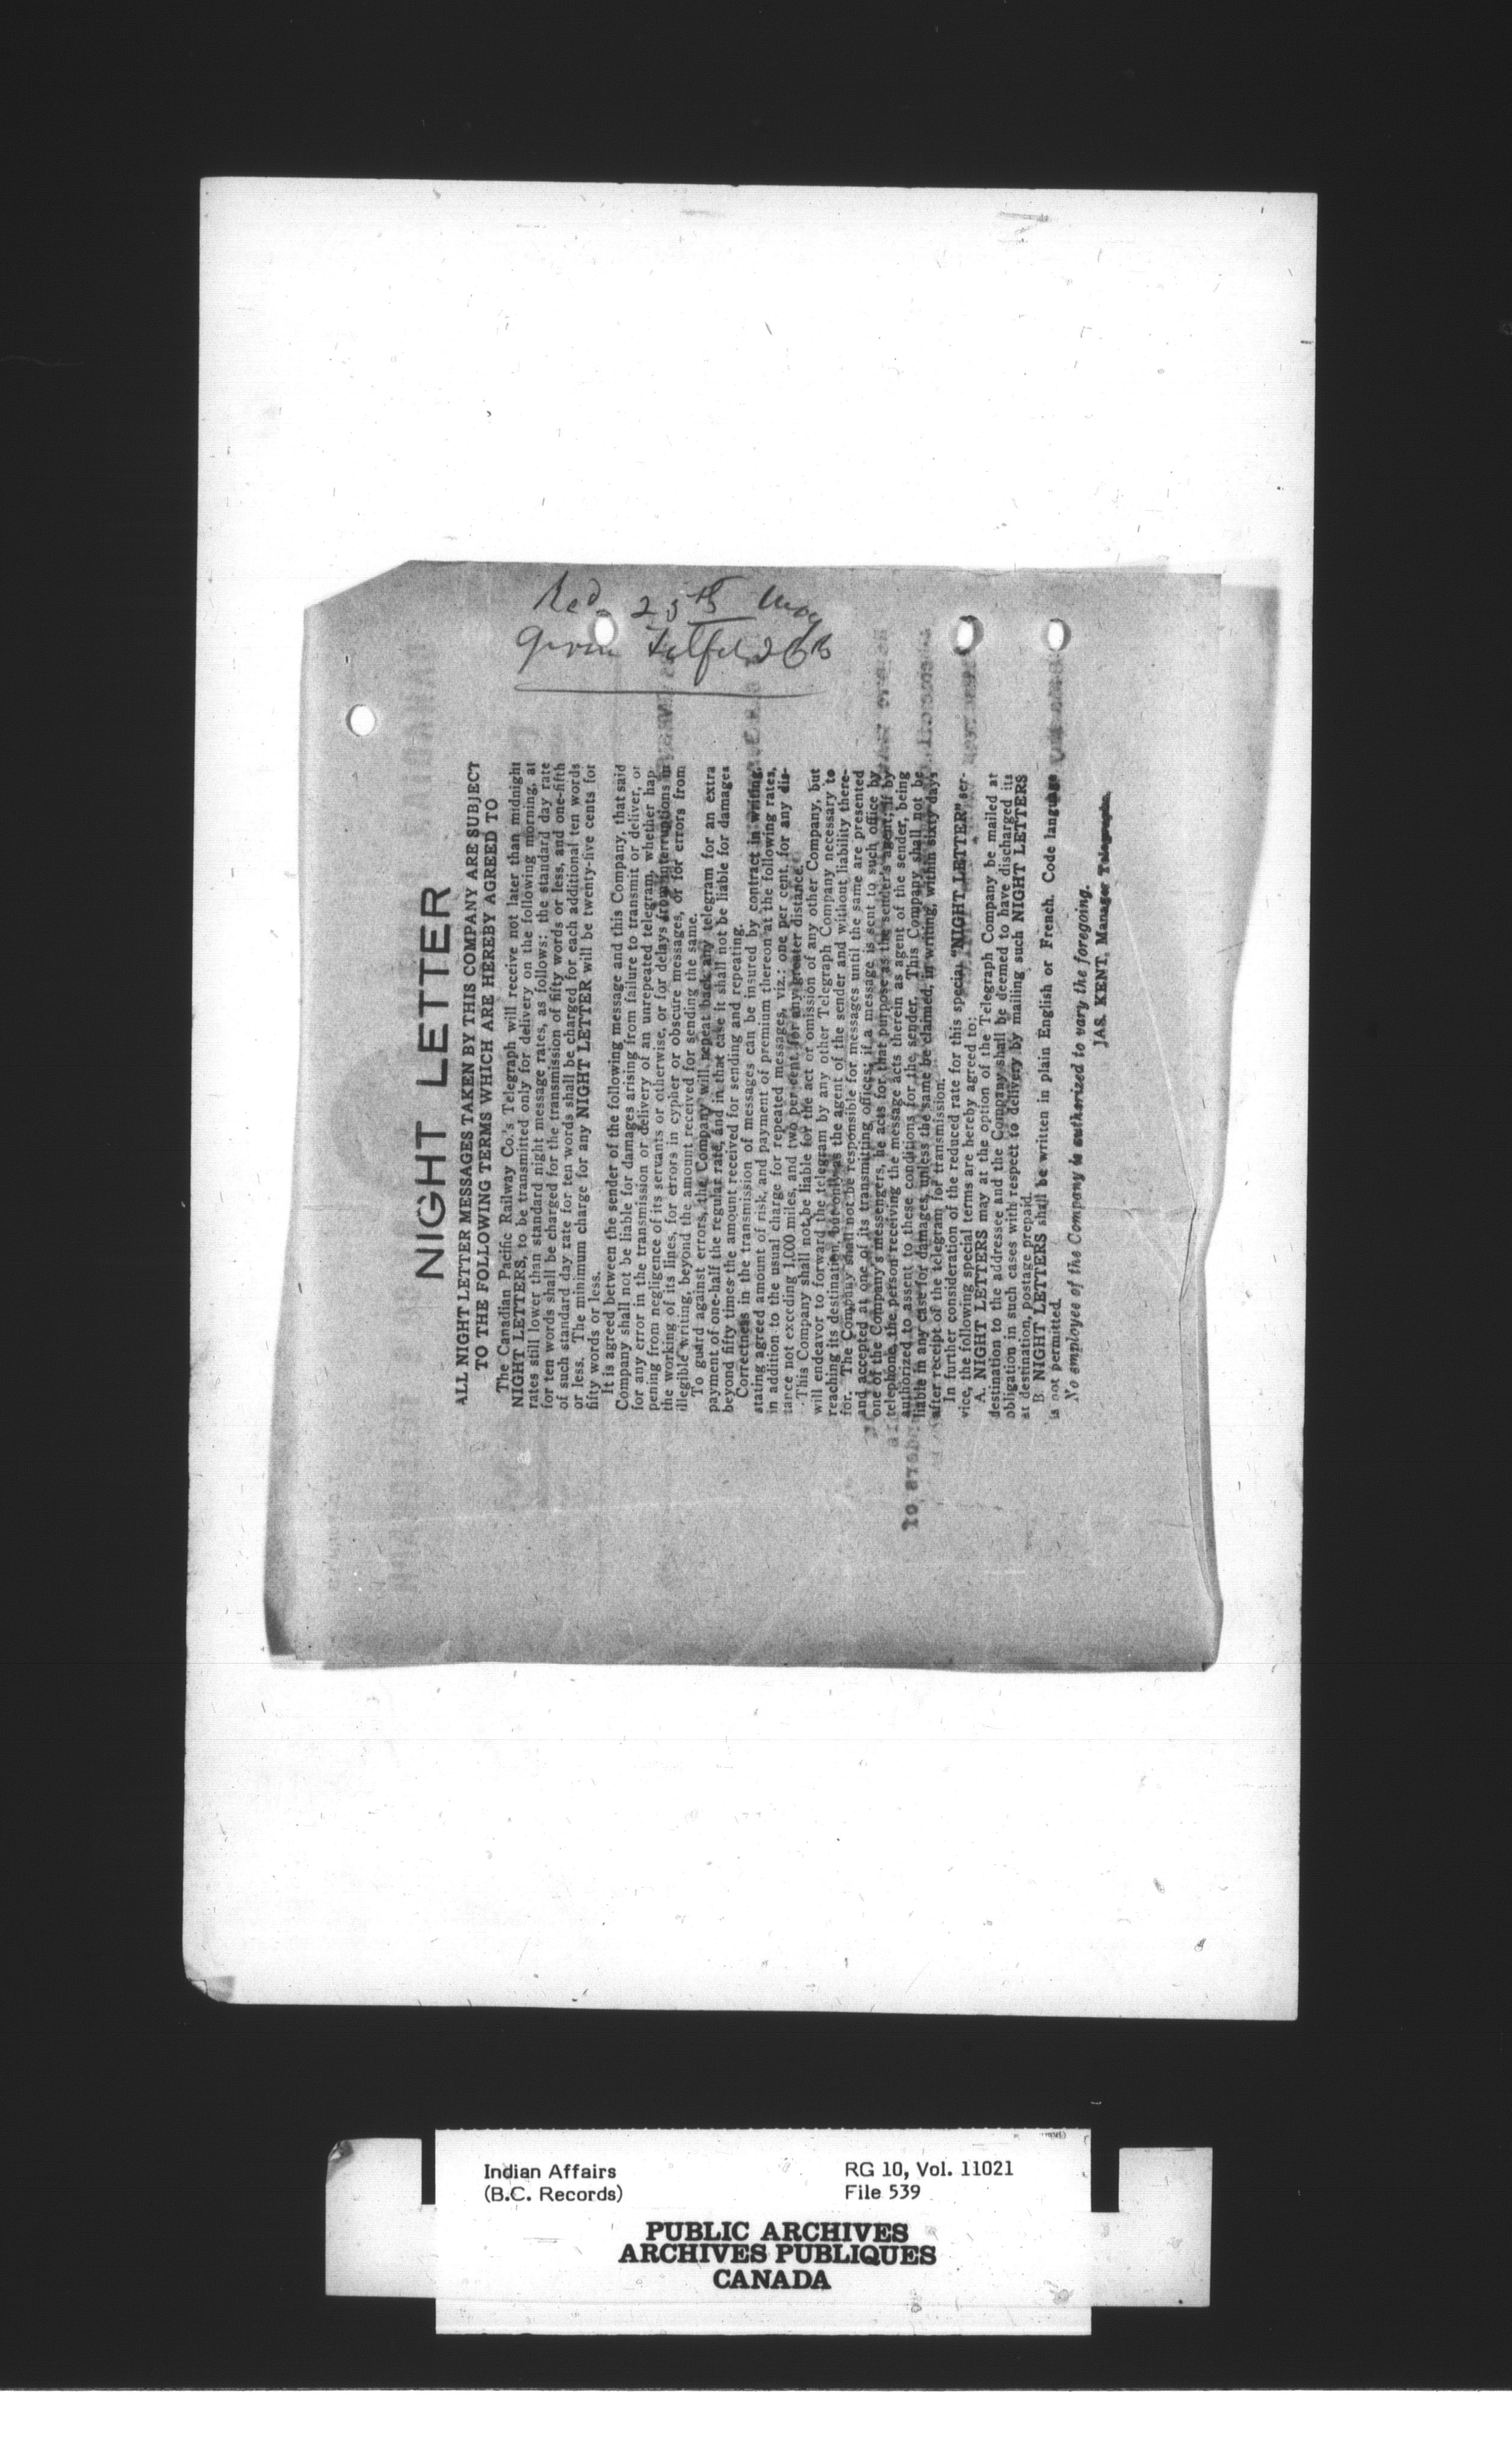 Recd 25th May
given 26th
NIGHT LETTER
ALL NIGHT LETTER MESSAGES TAKEN BY THIS COMPANY ARE SUBJECT
TO THE FOLLOWING TERMS WHICH ARE HEREBY AGREED TO
The Canadian Pacific Railway Co.'s Telegraph will receive not later than midnight
NIGHT LETTERS, to be transmitted only for delivery on the following morning, at
rates still lower than standard night message rates, as follows: the standard day rate
for ten words shall be charged for the transmission of fifty words or less, and one-fifth
of such standard day rate for ten words shall be charged for each additional ten words
or less. The minimum charge for any NIGHT LETTER will be twenty-five cents for
fifty words or less.
It is agreed between the sender of the following message and this Company, that said
Company shall not be liable for damages arising from failure to transmit or deliver, or
for any error in the transmission or delivery of an unrepeated telegram, whether hap-
pening from negligence of its servants or otherwise, or for delays from interruptions in
the working of its lines, for errors in cypher or obscure messages, or for errors from
illegible writing, beyond the amount received for sending the same.
To guard against errors, the Company will repeat back any telegram for an extra
payment of one-half the regular rate, and in that case it shall not be liable for damages
beyond fifty times the amount received for sending and repeating.
Correctness in the transmission of messages can be insured by contract in writing,
stating agreed amount of risk, and payment of premium thereon at the following rates,
in addition to the usual charge for repeated messages, viz.: one per cent. for any dis-
tance not exceding 1,000 miles, and two per cent. for any greater distance.
This Company shall not be liable for the act or omission of any other Company, but
will endeavor to forward the telegram by any other Telegraph Company necessary to
reaching its destination, but only as the agent of the sender and without liability there-
for. The Company shall not be responsible for messages until the same are presented
and accepted at one of its transmitting offices; if a message is sent to such office by
one of the Company's messengers, he acts for that purpose as the sender's agent; if by
telephone, the person receiving the message acts therein as agent of the sender, being
authorized to assent to these conditions for the sender. This Company shall not be
liable in any case for damages, unless the same be claimed, in writing, within sixty days
after receipt of the telegram for transmission.
In further consideration of the reduced rate for this special "NIGHT LETTER" ser-
vice, the following special terms are hereby agreed to:
A. NIGHT LETTERS may at the option of the Telegraph Company be mailed at
destination to the addressee and the Company shall be deemed to have discharged its
obligation in such cases with respect to delivery by mailing such NIGHT LETTERS
at destination, postage prepaid.
B. NIGHT LETTERS shall be written in plain English or French. Code language
is not permitted.
No employee of the Company is authorized to vary the foregoing.
JAS. KENT, Manager Telegraphs.
Indian Affairs
(B.C. Records)
RG 10, Vol. 11021
File 539
PUBLIC ARCHIVES
ARCHIVES PUBLIQUES
CANADA